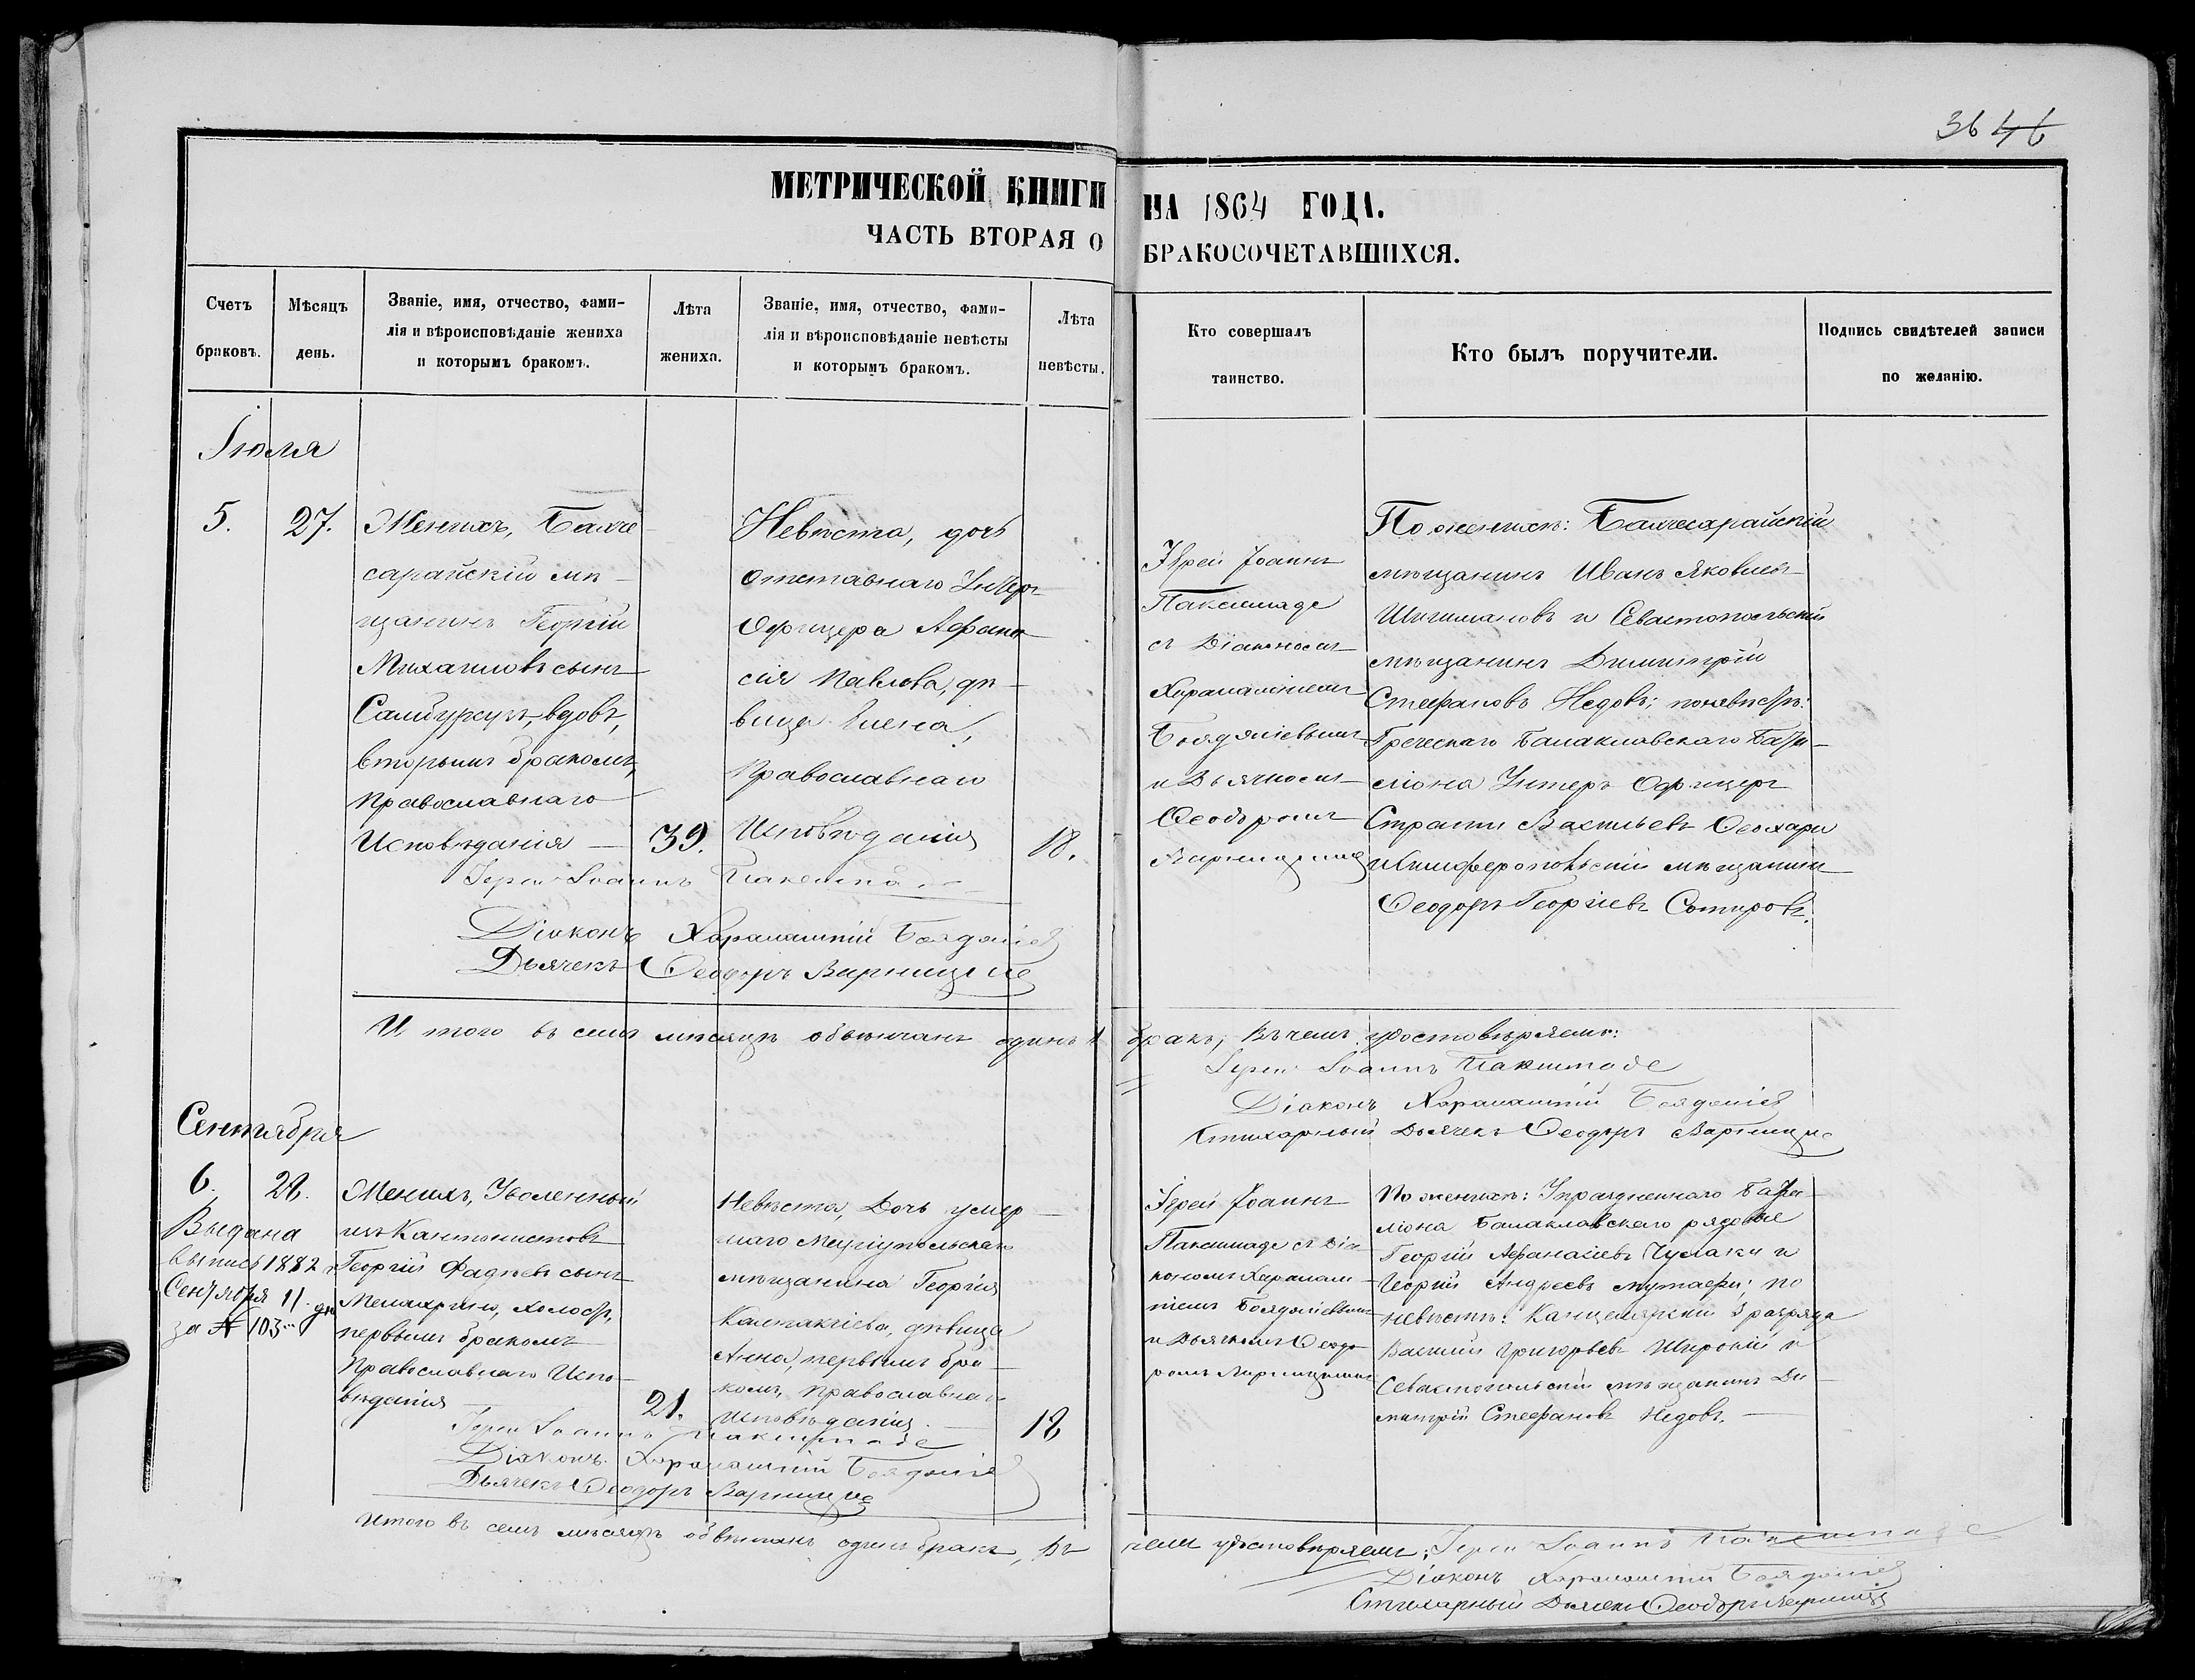 36 46
МЕТРИЧЕСКОЙ КНИГИ НА 1864 ГОДА.
ЧАСТЬ ВТОРАЯ О БРАКОСОЧЕТАВШИХСЯ.
Счетъ
браковъ.
Мѣсяцъ
день.
Званіе, имя, отчество, фами-
лія и вѣроисповѣданіе жениха
и которымъ бракомъ.
Лѣта
жениха.
Званіе, имя, отчество, фами-
лія и вѣроисповѣданіе невѣсты
и которымъ бракомъ.
Лѣта
невѣсты.
Кто совершалъ
таинство.
Кто былъ поручители.
Подпись свидѣтелей записи
по желанію.
Іюля
5.
27.
Женихъ, Бахче
сарайскій мѣ-
щанинъ Георгій
Михаиловъ сынъ
вдовъ,
вторымъ бракомъ,
Православнаго
Исповѣданія
39.
Невѣста, дочь
отставнаго Унтеръ
Офицера Афана
сія Павлова, дѣ-
вица Елена,
Православнаго
Исповѣданія
18.
Іерей Іоаннъ
Паксимаде
съ Діакономъ
Харалампіемъ
и Дьячкомъ
Ѳеодоромъ
По женихѣ: Бахчисарайскій
мѣщанинъ Иванъ Яковлевъ
и Севастопольскій
мѣщанинъ Димитрій
Стефановъ Недовъ; по невѣстѣ:
Греческаго Балаклавскаго Бата-
ліона Унтеръ Офицеръ
Васильевъ
и Симферопольскій мѣщанинъ
Ѳеодоръ Георгіевъ Сотировъ.
Іерей Іоаннъ Паксимаде
Діаконъ Харалампій
Дьячекъ Ѳеодоръ Варницкіе
И того въ семъ мѣсяцѣ обвѣнчанъ одинъ 1 бракъ, въ чемъ удостовѣряемъ:
Іерей Іоаннъ Паксимаде
Діаконъ Харалампій
Стихарный Дьячекъ Ѳеодоръ
Сентября
6.
Выдана
выпись 1882 г.
Сентября 11 дня
за № 103
Женихъ, Уволенный
изъ Кантонистовъ
Георгій Фадѣевъ сынъ
холостъ,
первымъ бракомъ
Православнаго Испо-
вѣданія
21.
Невѣста, Дочь умер-
шаго Маріупольскаго
мѣщанина Георгія
дѣвица
Анна, первымъ бра-
комъ, Православнаго
Исповѣданія.
18
Іерей Іоаннъ
Паксимаде съ Діа-
кономъ Харалам-
піемъ
и Дьячкомъ Ѳеодо-
ромъ
По женихѣ: Упраздненнаго Бата-
ліона Балаклавскаго рядовые
Георгій Афанасіевъ Чулаки и
Георгій Андреевъ по
невѣстѣ: Канцелярскій 3 разряда
Василій Григорьевъ Широкій и
Севастопольскій мѣщанинъ Ди-
митрій Стефановъ Недовъ.
Іерей Іоаннъ Паксимаде
Діаконъ Харалампій
Дьячекъ Ѳеодоръ Варницкіе
Итого въ семъ мѣсяцѣ обвѣнчанъ одинъ бракъ, въ чемъ удостовѣряемъ: Іерей Іоаннъ Паксимаде
Діаконъ Харалампій
Стихарный Дьячекъ Ѳеодоръ